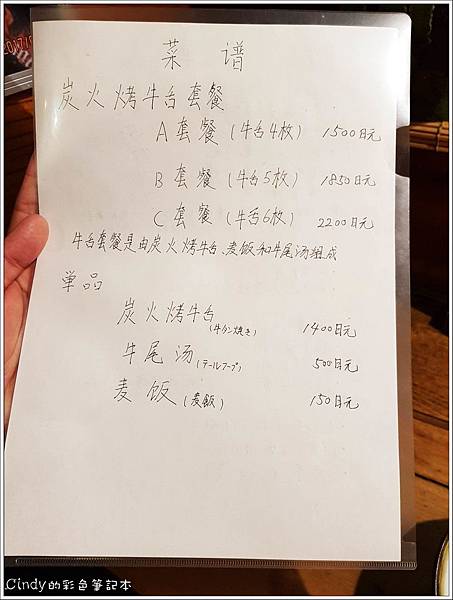 菜 谱
炭火烤牛舌套餐
A套餐(牛舌4枚) 1500日元
B套餐(牛舌5枚) 1850日元
C套餐(牛舌6枚) 2200日元
牛舌套餐是由炭火烤牛舌、麦飯和牛尾汤组成
单品
炭火烤牛舌(牛タン焼き) 1400日元
牛尾汤(テールスープ) 500日元
麦飯(麦飯) 150日元
Cindy的彩色筆記本